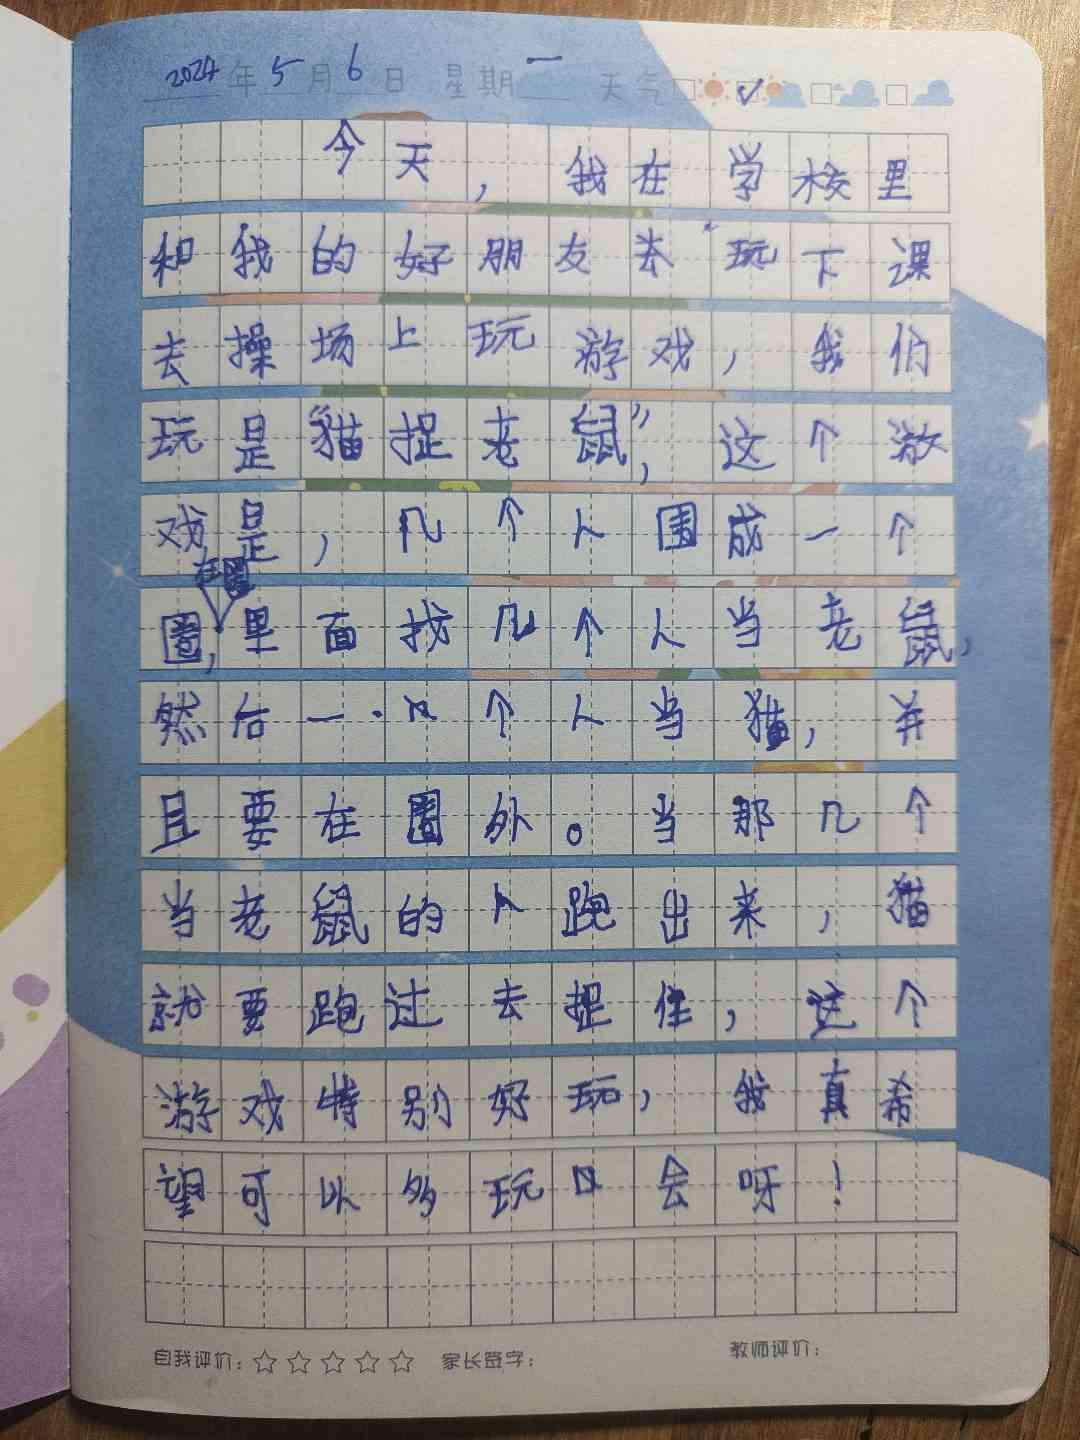 2024年5月6日 星期一 天气
今天，我在学校里
和我的好朋友去玩下课
去操场上玩游戏，我们
玩是“猫捉老鼠”，这个游
戏是，几个人围成一个
在圈
圈，里面找几个人当老鼠，
然后一.几个人当猫，并
且要在圈外。当那几个
当老鼠的人跑出来，猫
就要跑过去捉住，这个
游戏特别好玩，我真希
望可以多玩口会呀！
自我评价：☆☆☆☆☆ 家长签字： 教师评价：